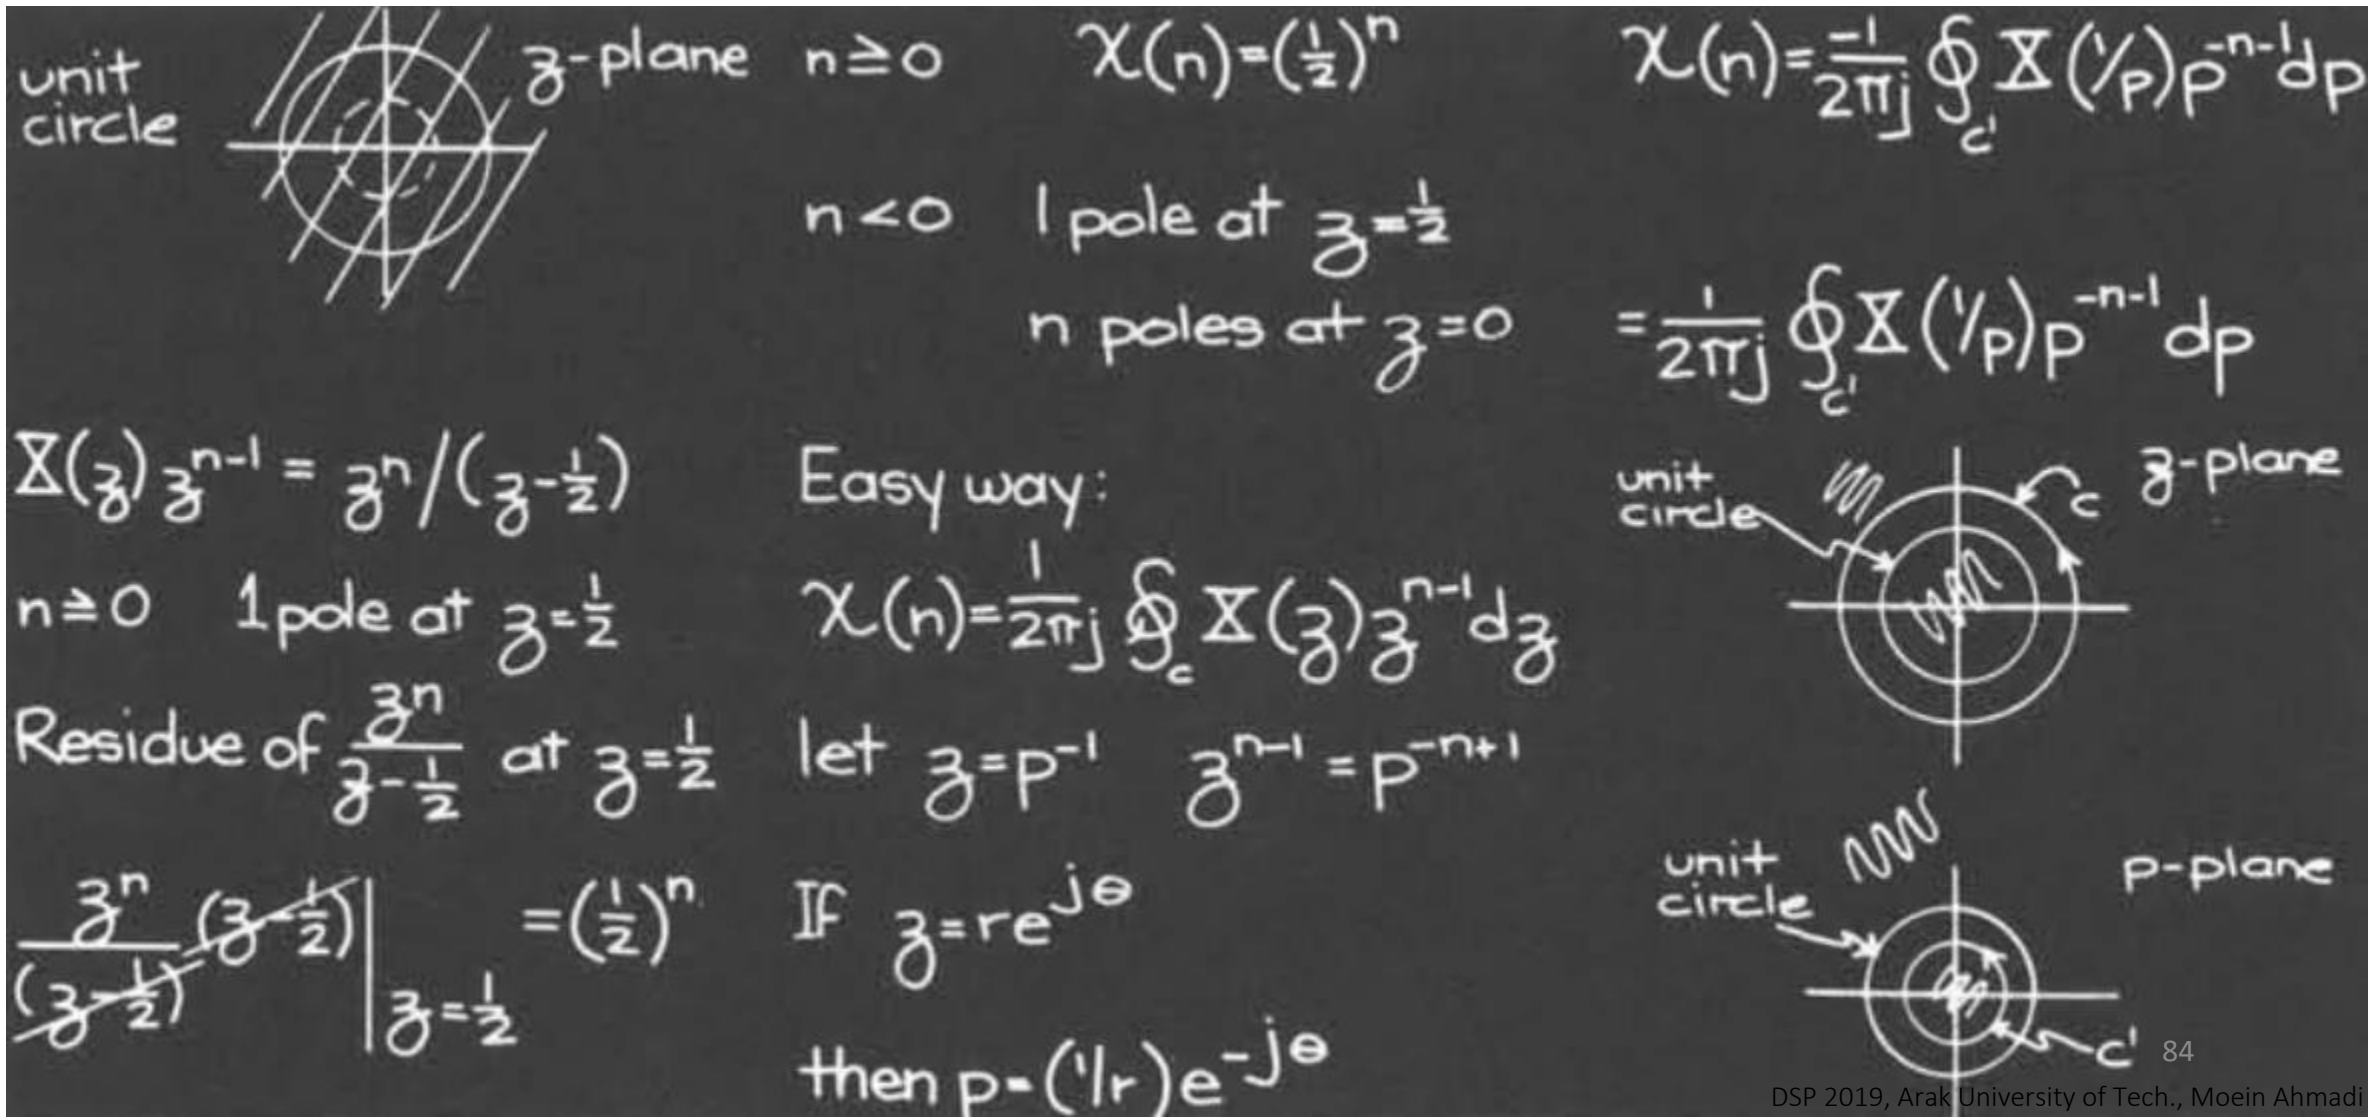 unit
circle
z-plane
X(z) z^{n-1} = z^n/(z-1/2)
n≧0 1 pole at z=1/2
Residue of z^n/(z-1/2) at z=1/2
z^n/(z-1/2) (z-1/2)|z=1/2 =(1/2)^n
n≧0 x(n)=(1/2)^n
n<0 1 pole at z=1/2
n poles at z=0
Easy way:
x(n)=1/2πj ∮c X(z)z^{n-1}dz
let z=p^{-1} z^{n-1}=p^{-n+1}
If z=re^{jθ}
then p=(1/r)e^{-jθ}
x(n)=-1/2πj ∮c' X(1/p)p^{-n-1}dp
=1/2πj ∮c' X(1/p)p^{-n-1}dp
unit
circle
c
z-plane
unit
circle
p-plane
c'
84
DSP 2019, Arak University of Tech., Moein Ahmadi